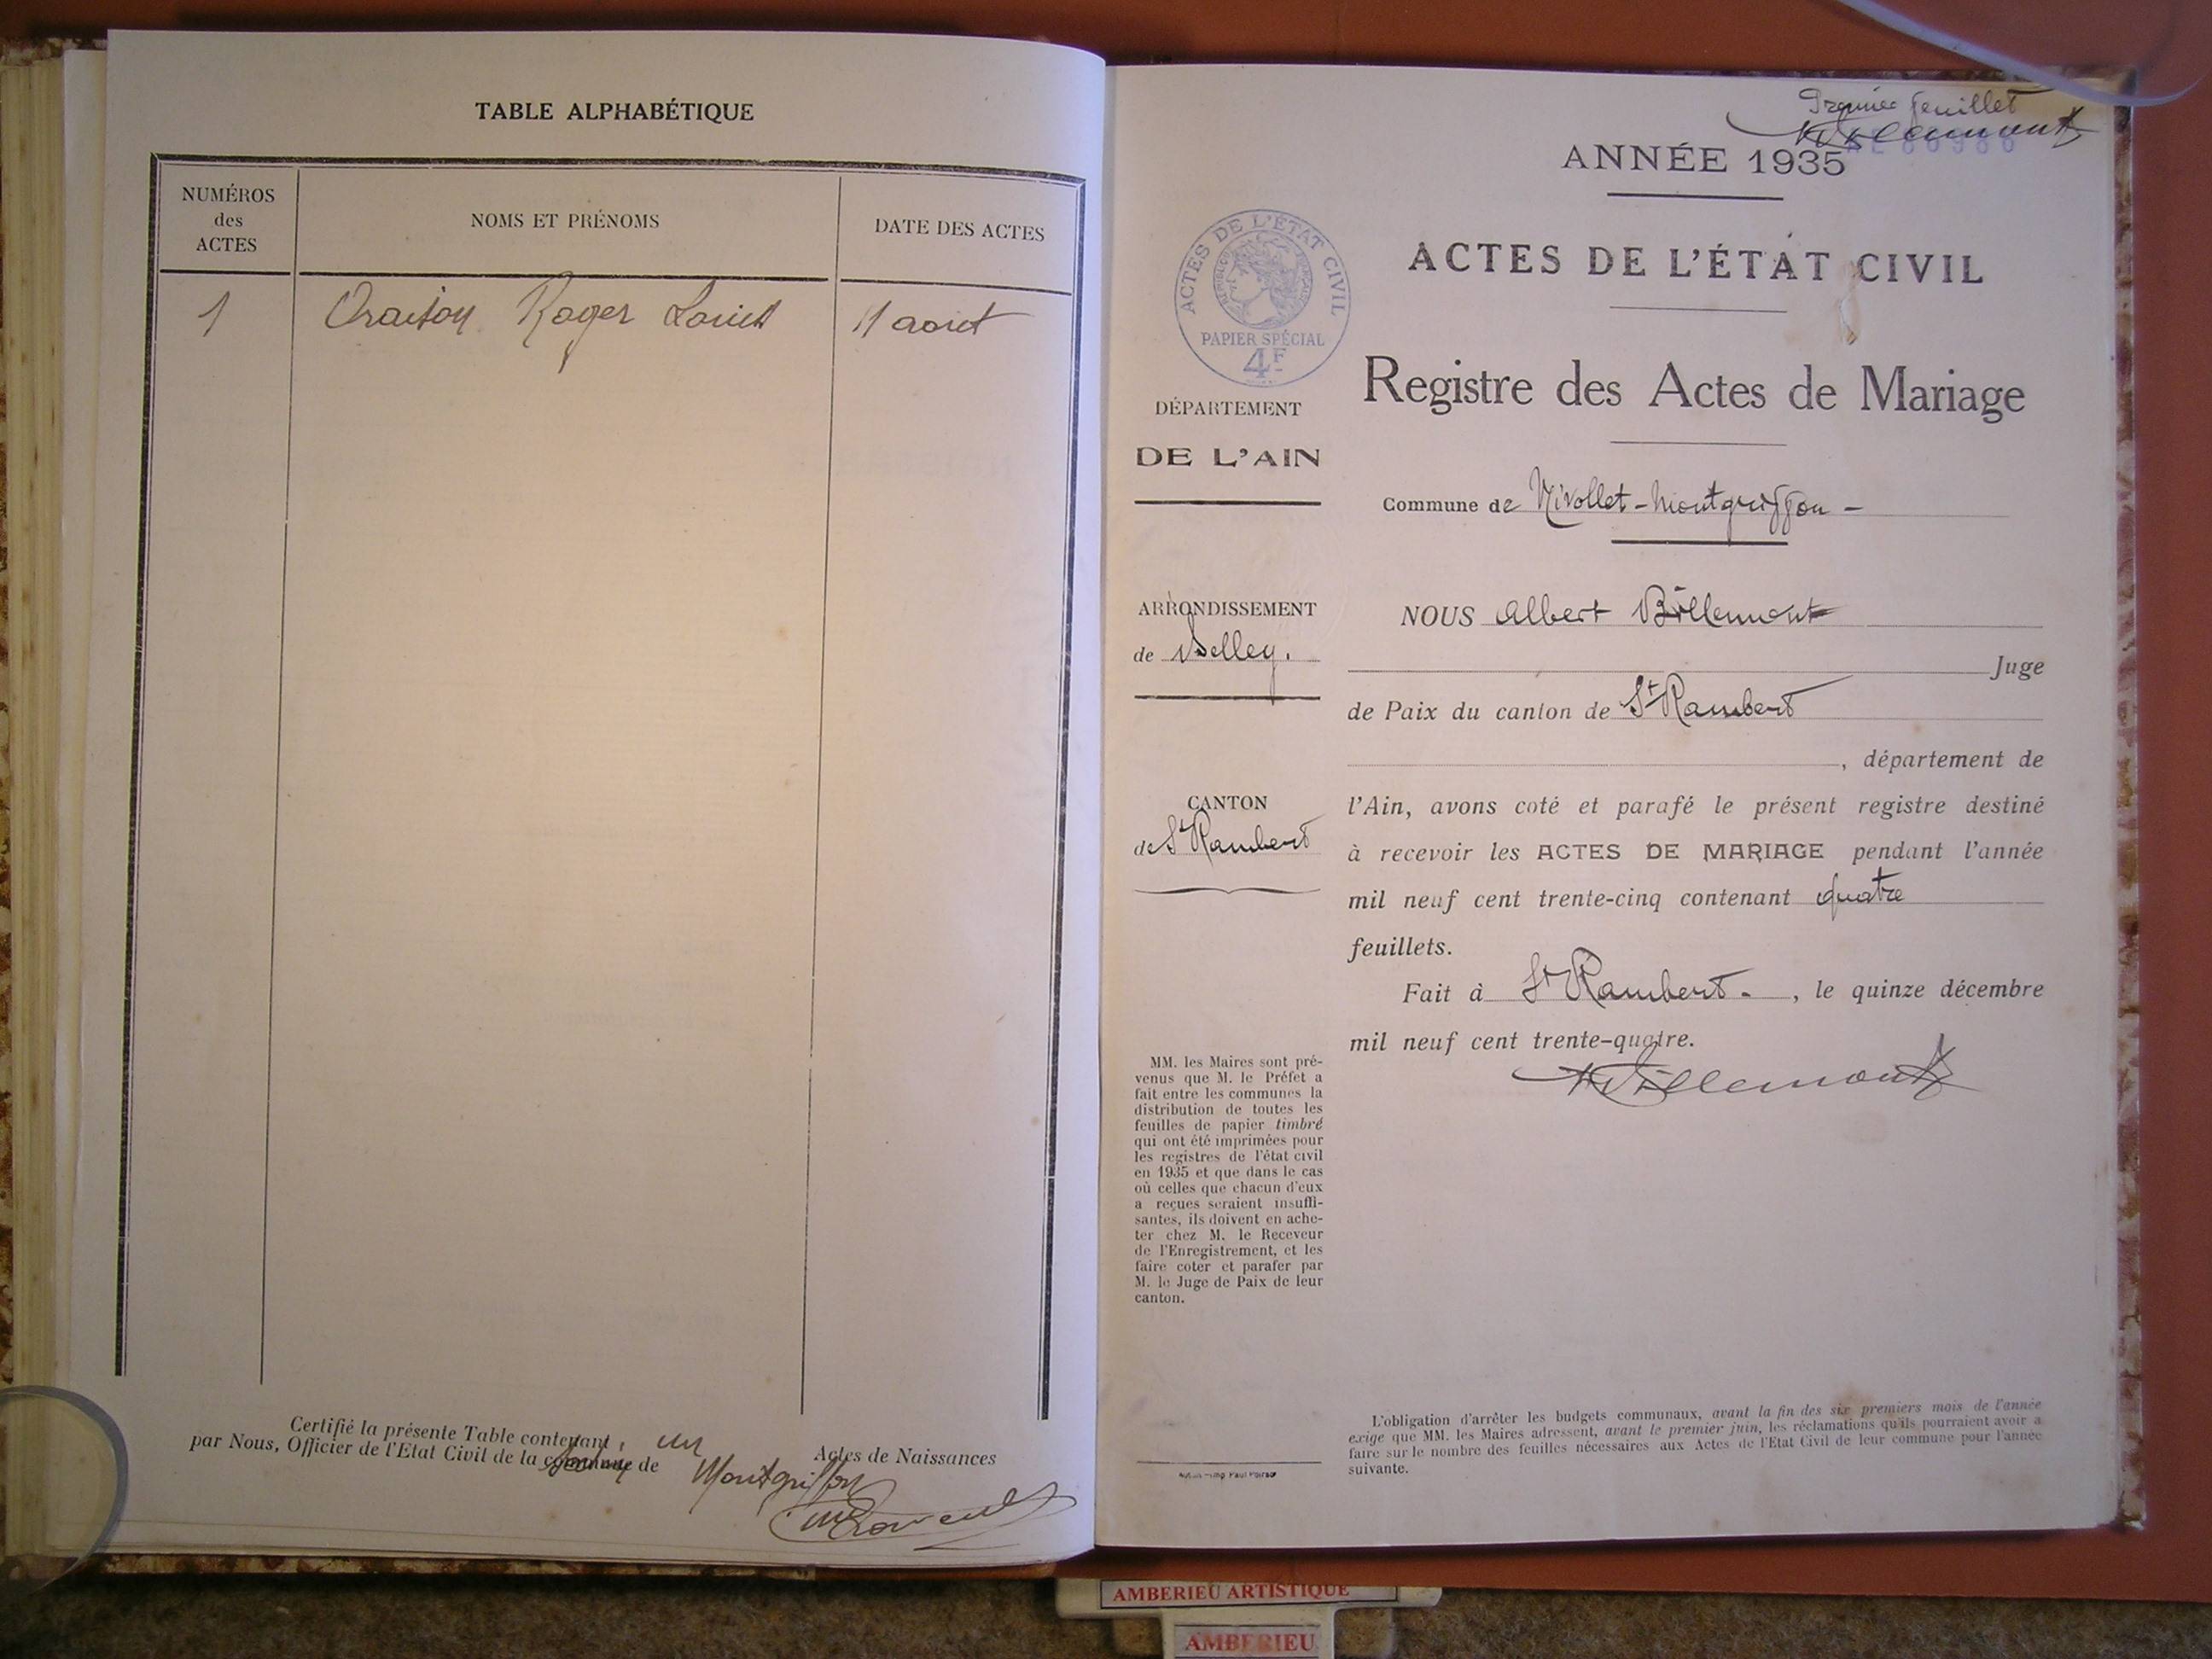 TABLE ALPHABÉTIQUE
NUMÉROS
des
ACTES
NOMS ET PRÉNOMS
DATE DES ACTES
1 Oraison Roger Louis 11 aout
Certifié la présente Table contenant, un Actes de Naissances
par Nous, Officier de l'Etat Civil de la commune de Montgriffon
Premier feuillet
ANNÉE 1935
ACTES DE L'ÉTAT CIVIL
PAPIER SPÉCIAL
4F
ACTES DE L'ÉTAT CIVIL
Registre des Actes de Mariage
DÉPARTEMENT
DE L'AIN
Commune de Nivollet-Montgriffon -
ARRONDISSEMENT
de Belley.
CANTON
de St Rambert
NOUS Albert Billemont
Juge
de Paix du canton de St Rambert
, département de
l'Ain, avons coté et parafé le présent registre destiné
à recevoir les ACTES DE MARIAGE pendant l'année
mil neuf cent trente-cinq contenant quatre
feuillets.
Fait à St Rambert. , le quinze décembre
mil neuf cent trente-quatre.
Billemont
MM. les Maires sont pré-
venus que M. le Préfet a
fait entre les communes la
distribution de toutes les
feuilles de papier timbré
qui ont été imprimées pour
les registres de l'état civil
en 1935 et que dans le cas
où celles que chacun d'eux
a reçues seraient insuffi-
santes, ils doivent en ache-
ter chez M. le Receveur
de l'Enregistrement, et les
faire coter et parafer par
M. le Juge de Paix de leur
canton.
L'obligation d'arrêter les budgets communaux, avant la fin des six premiers mois de l'année
exige que MM. les Maires adressent, avant le premier juin, les réclamations qu'ils pourraient avoir à
faire sur le nombre des feuilles nécessaires aux Actes de l'Etat Civil de leur commune pour l'année
suivante.
AMBERIEU ARTISTIQUE
AMBERIEU